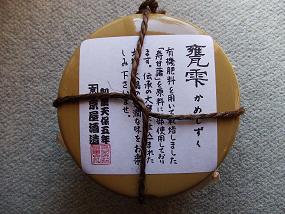 甕雫
かめしずく
有機肥料を用いて栽培しました
「寿甘藷」を原料に一部使用しており
ます。伝承の大甕 込まれた
な味をお楽
しみ下さいませ。
創業天保五年
京屋酒造